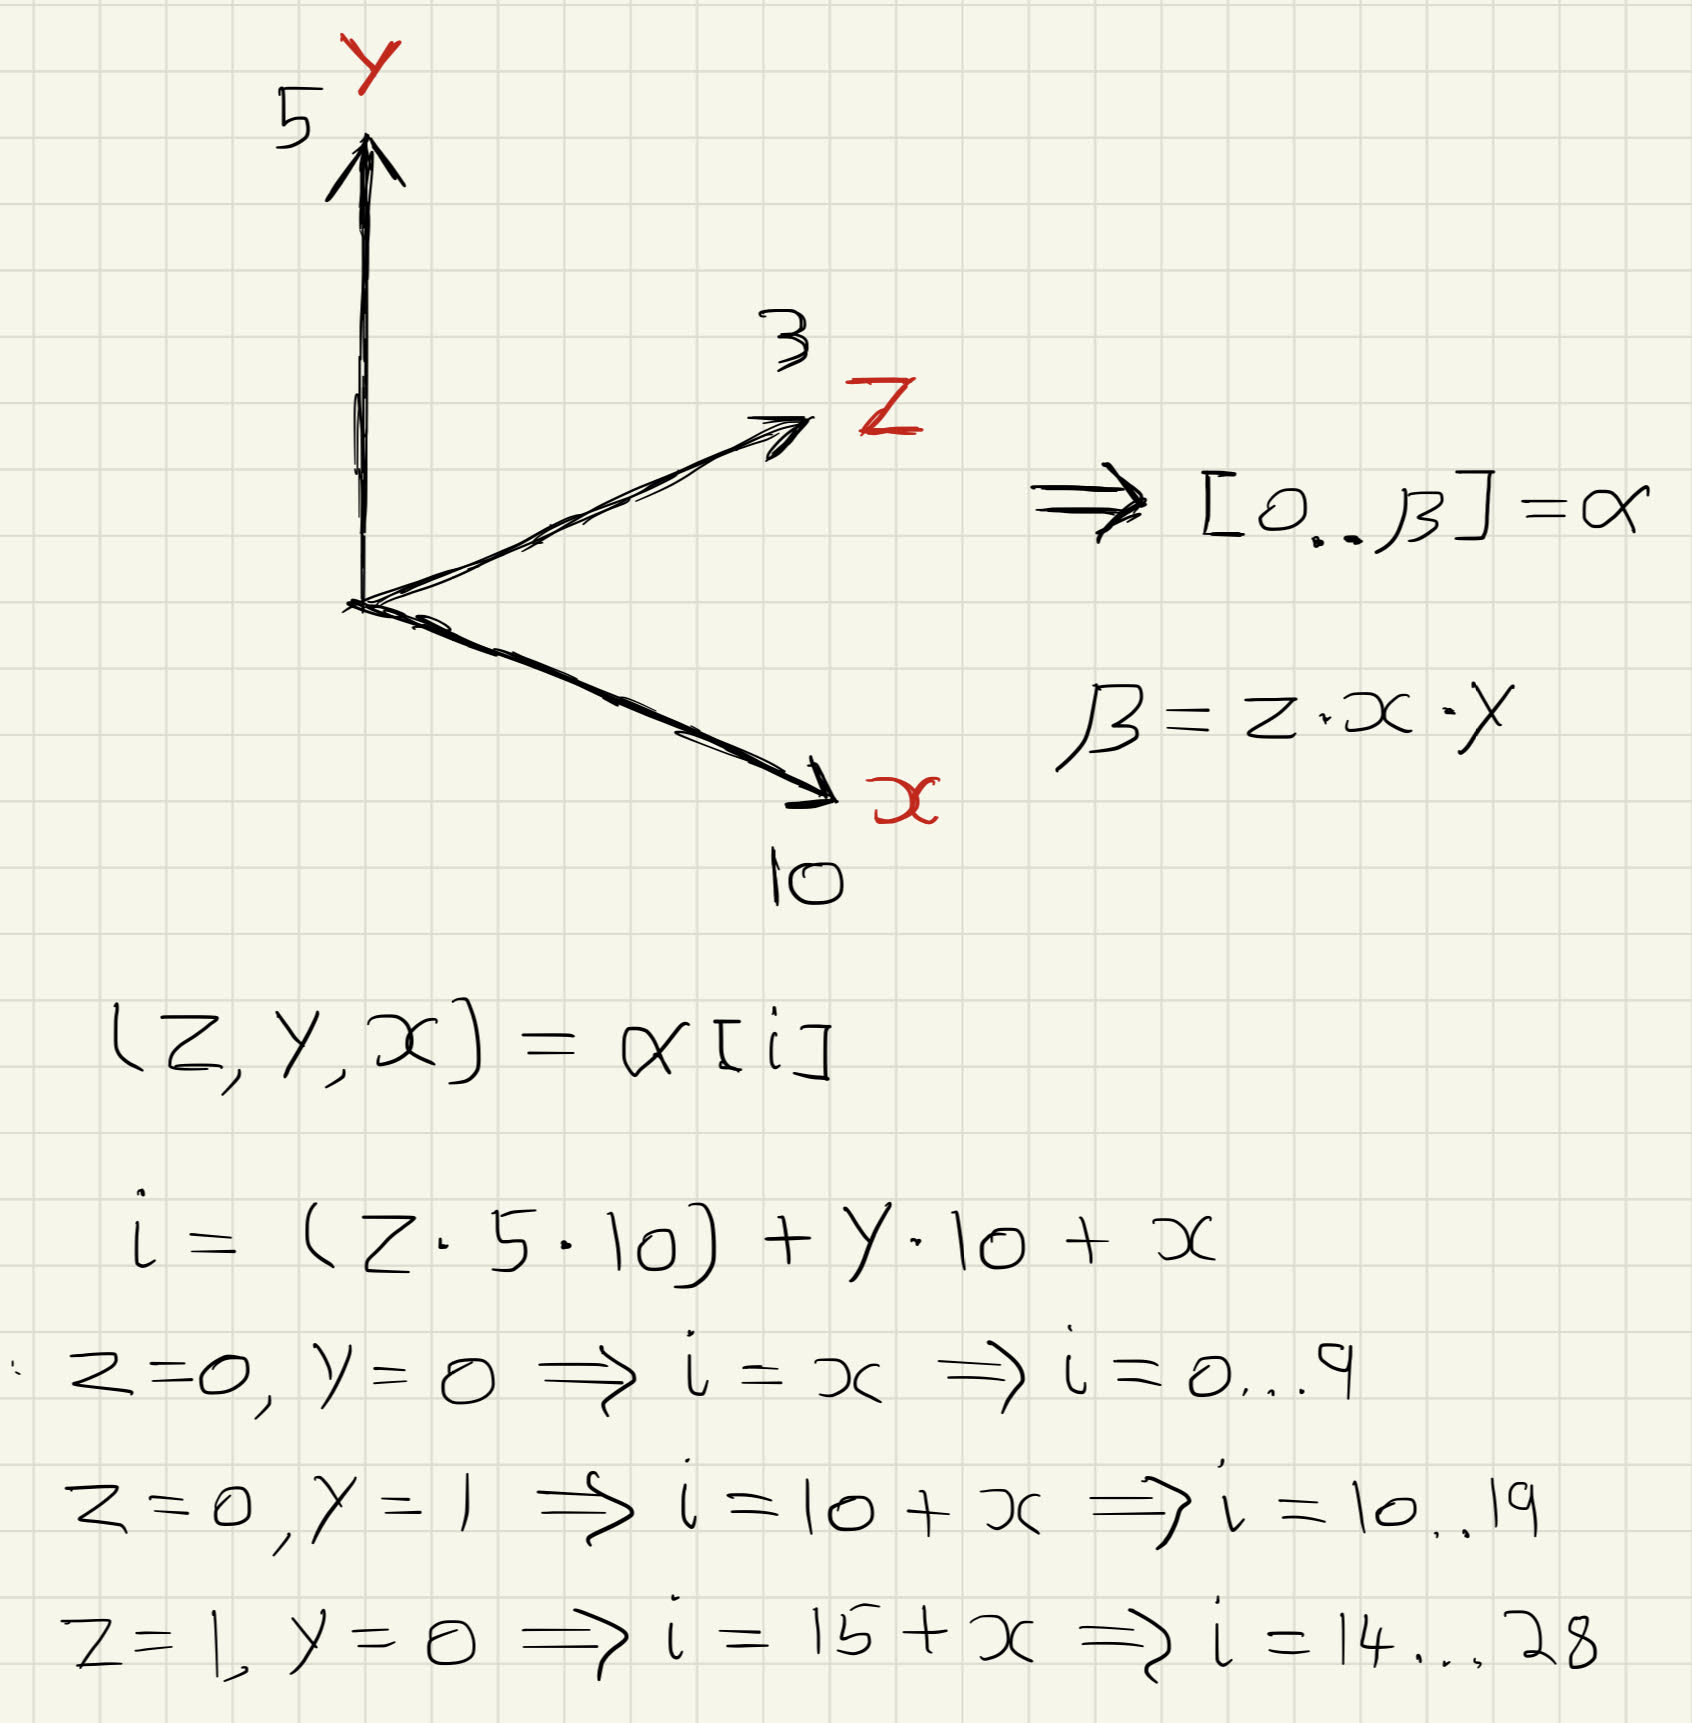 Y
5
3
Z
⇒ [0..β] = α
β = z·x·y
x
10
(z, y, x) = α[i]
i = (z·5·10) + y·10 + x
z=0, y=0 ⇒ i=x ⇒ i=0...9
z=0, y=1 ⇒ i=10+x ⇒ i=10..19
z=1, y=0 ⇒ i=15+x ⇒ i=14...28